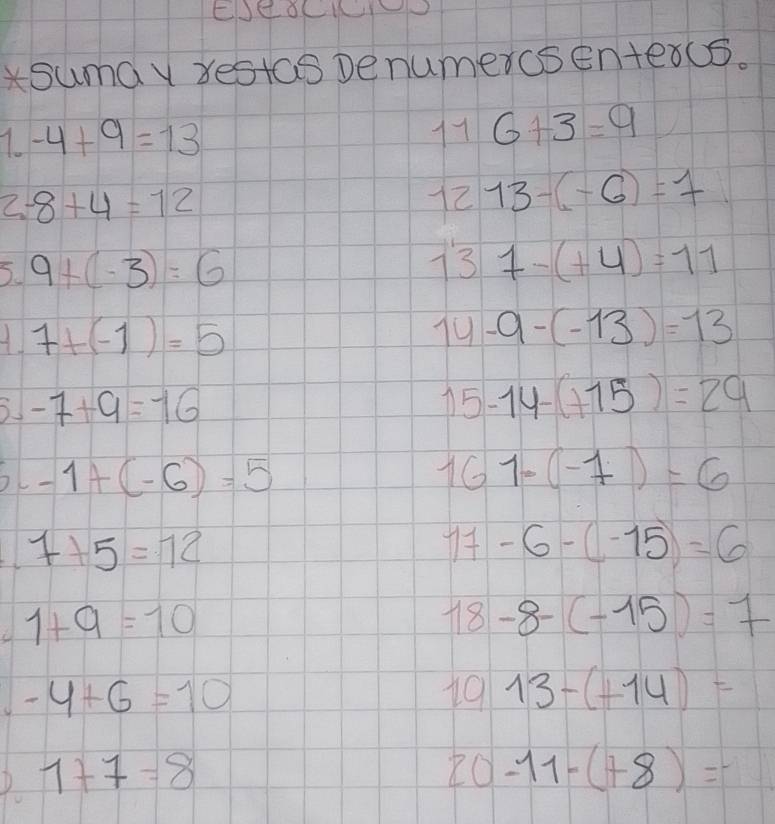 Ejercicios
*Suma y restas De numeros Enteros.
1. -4+9=13
2. -8+4=12
3. 9+(-3)=6
4. 7+(-1)=5
5. -7+9=16
6. -1+(-6)=5
7+5=12
1+9=10
-4+6=10
1+7=8
11 6+3=9
12 13-(-6)=7
13 7-(+4)=11
14 -9-(-13)=13
15 -14-(+15)=29
16 1-(-7)=6
17 -6-(-15)=6
18 -8-(-15)=7
19 13-(+14)=
20 -11-(+8)=